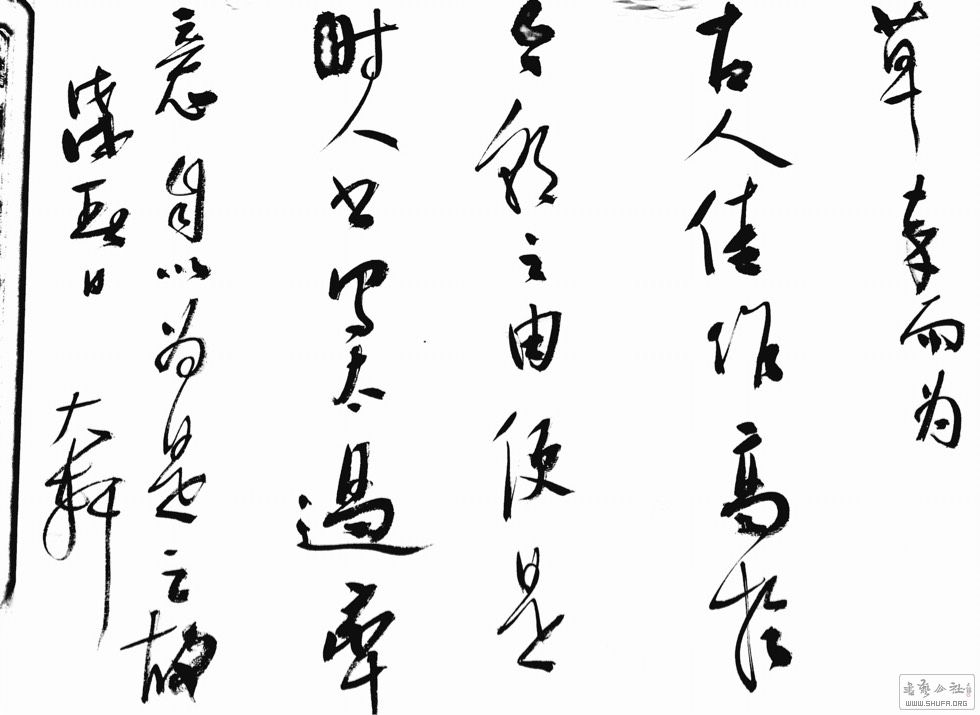 草率而为
古人佳作高於
今之由便是
时人书写太过率
意自以为是之故
春日 大
书艺公社
WWW.SHUFA.ORG